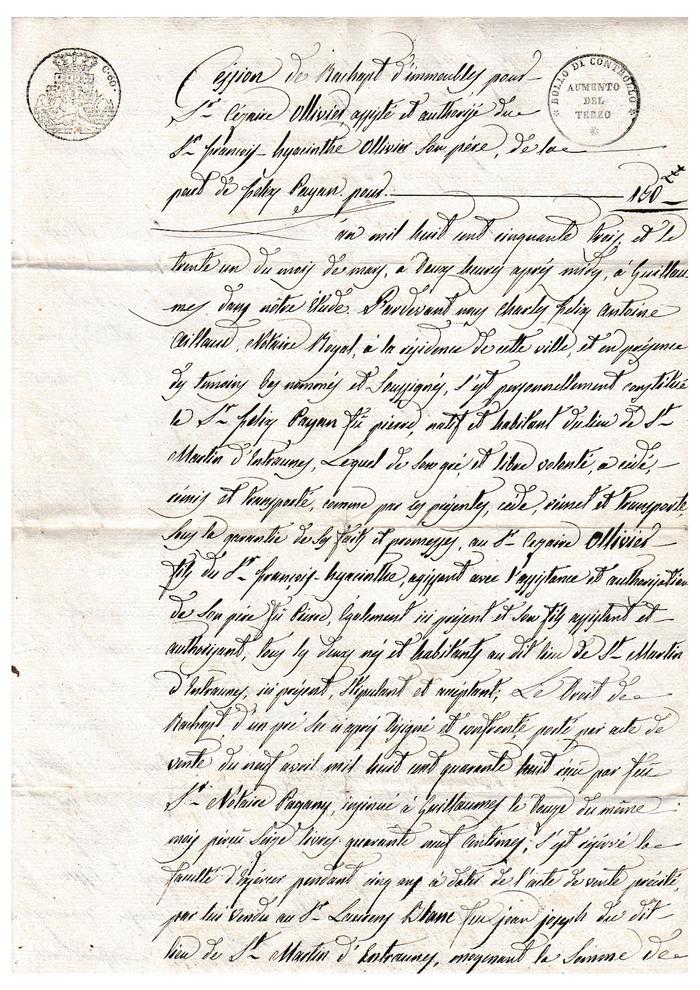 C. 60.
BOLLO DI CONTROLLO
AUMENTO
DEL
TERZO
Cession de Rachapt d'immeubles pour
Sr. Cezaire Ollivier assisté et authorisé du
Sr. françois-hyacinthe Ollivier son père, de la
part de félix Payan. pour. 150
an mil huit cent cinquante trois, et le
trente un du mois de mars, a deux heures après midy, à Guillau
mes, dans nôtre Etude. Pardevant nous Charles felix Antoine
Aillaud, Notaire Royal, à la résidence de cette ville, et en présence
des temoins bas nommés et soussignés, s'est personnellement constitué
le Sr. felix Payan fû pierre, natif et habitant du lieu de St.
Martin d'Entraunes, Lequel de son gré, et libre volonté, a cédé,
rémis et transporté, comme par ces présentes, cède, rémet et transporte,
sous la garantie de ses faits et promesses, au Sr. Cezaire Ollivier
fils du Sr. françois-hyacinthe, agissant avec l'assistance et authorisation
de son père fû Pierre, Egalement ici présent et son fils assistant et
authorisant, tous les deux nés et habitants au dit lieu de St. Martin
d'Entraunes, ici présent, stipulant et acceptant; Le Droit de
Rachapt d'un pré ci après désigné et confronté porté par acte de
vente du neuf avril mil huit cent quarante huit reçu par feu
Sr. Notaire Pagany, insinué à Guillaumes le douze du même
mois seize livres quarante neuf centimes; s'est réservé la
faculté d'exercer pendant cinq ans à dater de l'acte de vente précité,
par lui vendu au Sr. Laurens Blanc feu jean joseph du dit
lieu de St. Martin d'Entraunes, moyenant la somme de